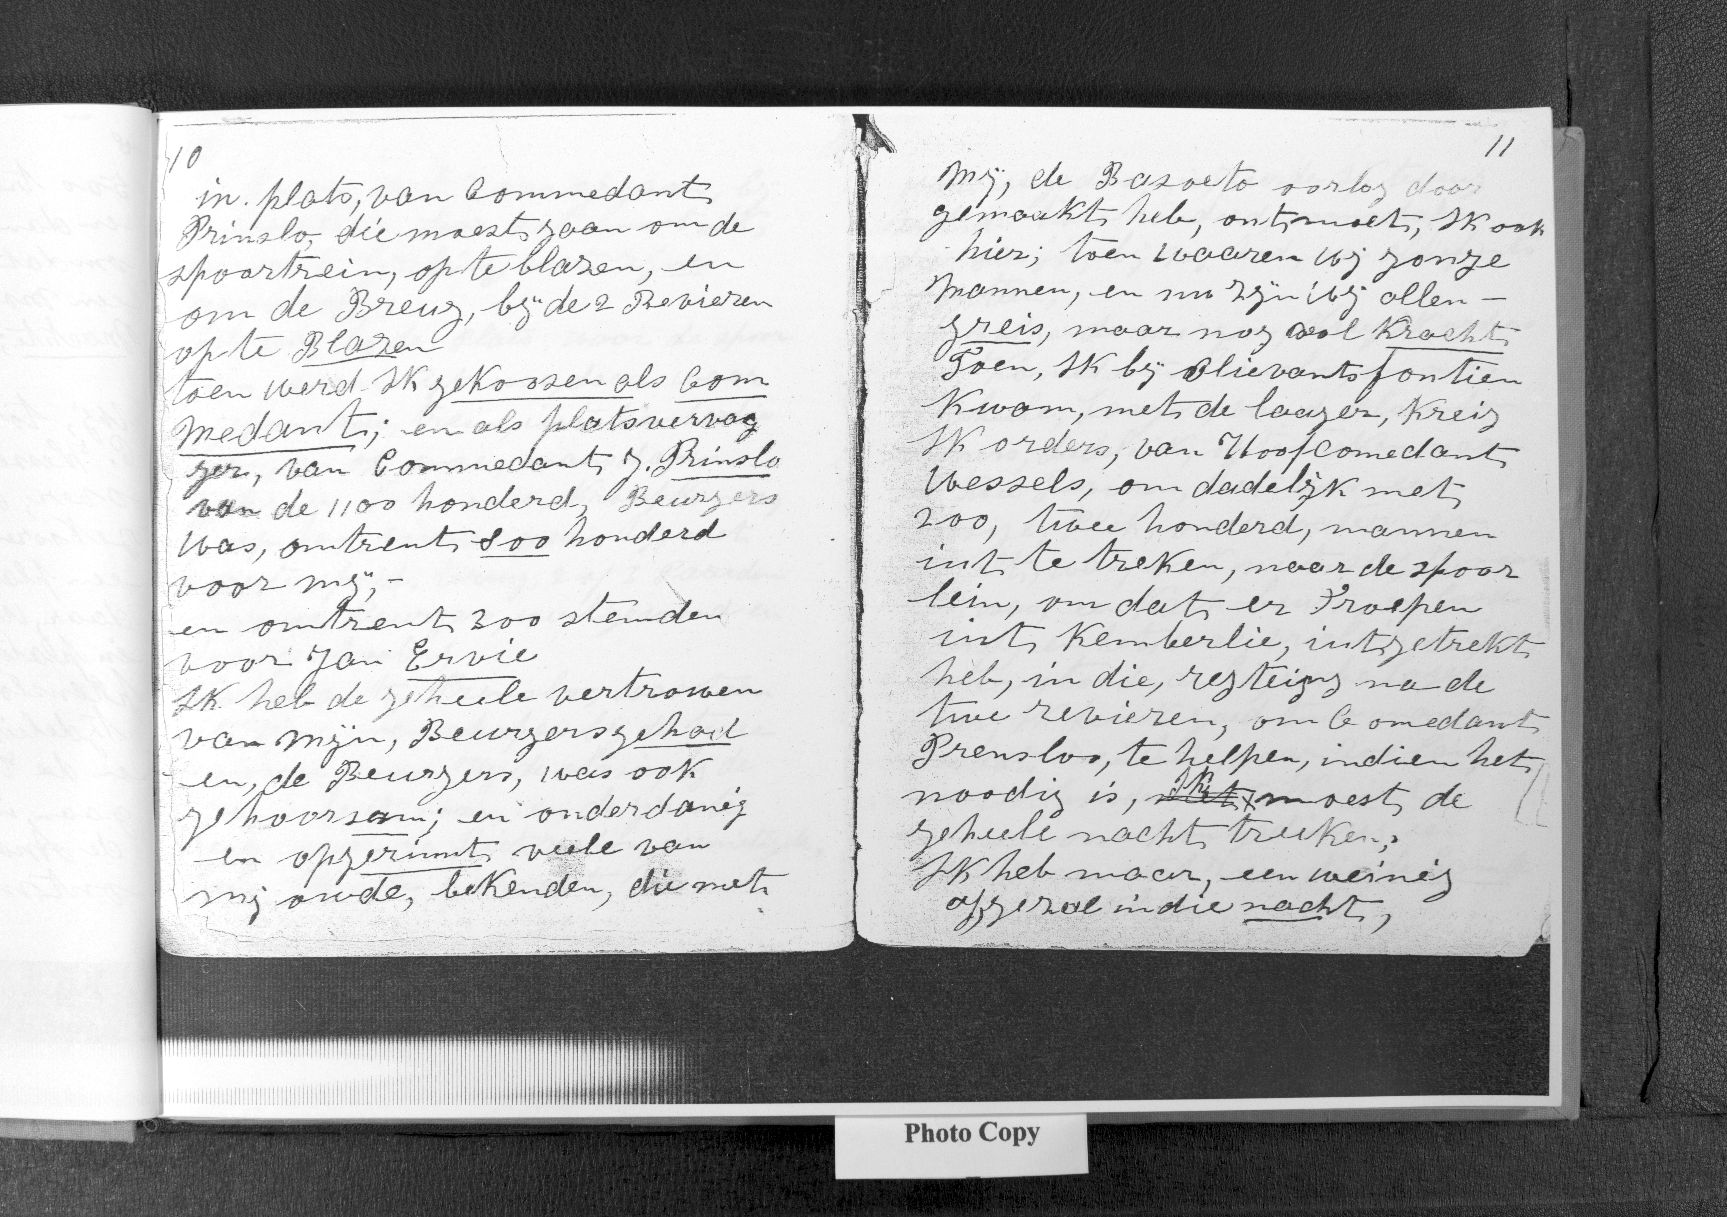 10
in. plats, van Commedant
Prinslo, die moest gaan om de
spoortrein, op te blazen, en
om de Breug, bÿ de 2 Revieren
op te Blazen
toen werd Ik gekoosen als Com
medant; en als platsvervag
ger, van Commedant J. Prinslo
van de 1100 honderd, Beurgers
was, omtrent 800 honderd
voor mÿ, -
en omtrent 300 stemden
voor Jan Ervie
Ik heb de geheele vertrowen
van mÿn, Beurgers gehad
en, de Beurgers, was ook
gehoorsam; en onderdanig
en opgerumt veele van
mij owde, bekenden, die met
11
Mÿ, de Basoeto oorlog door
gemaakt heb, ontmoet, Ik ook
hier; toen waaren wij jonge
mannen, en nu zÿn wij allen -
greis, maar nog wol kracht
Toen, Ik bÿ Olievantsfontien
kwam, met de laager, kreig
Ik orders, van Hoofcomedant
Wessels, om dadelÿk met
200, twee honderd, mannen
int te treken, naar de spoor
lein, om dat er Troepen
int Kemberlie, intgetrekt
heb, in die, regteing na de
twe revieren, om Comedant
Prensloo, te helpen, indien het
noodig is, Ik moest de
geheele nacht treeken,
Ik heb maar, een weinig
afgezal in die nacht,
Photo Copy